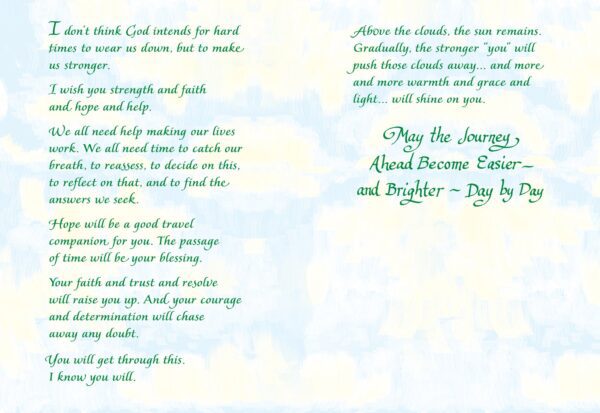 I don't think God intends for hard
times to wear us down, but to make
us stronger.
I wish you strength and faith
and hope and help.
We all need help making our lives
work. We all need time to catch our
breath, to reassess, to decide on this,
to reflect on that, and to find the
answers we seek.
Hope will be a good travel
companion for you. The passage
of time will be your blessing.
Your faith and trust and resolve
will raise you up. And your courage
and determination will chase
away any doubt.
You will get through this.
I know you will.
Above the clouds, the sun remains.
Gradually, the stronger "you" will
push those clouds away... and more
and more warmth and grace and
light... will shine on you.
May the Journey
Ahead Become Easier~
and Brighter ~ Day by Day